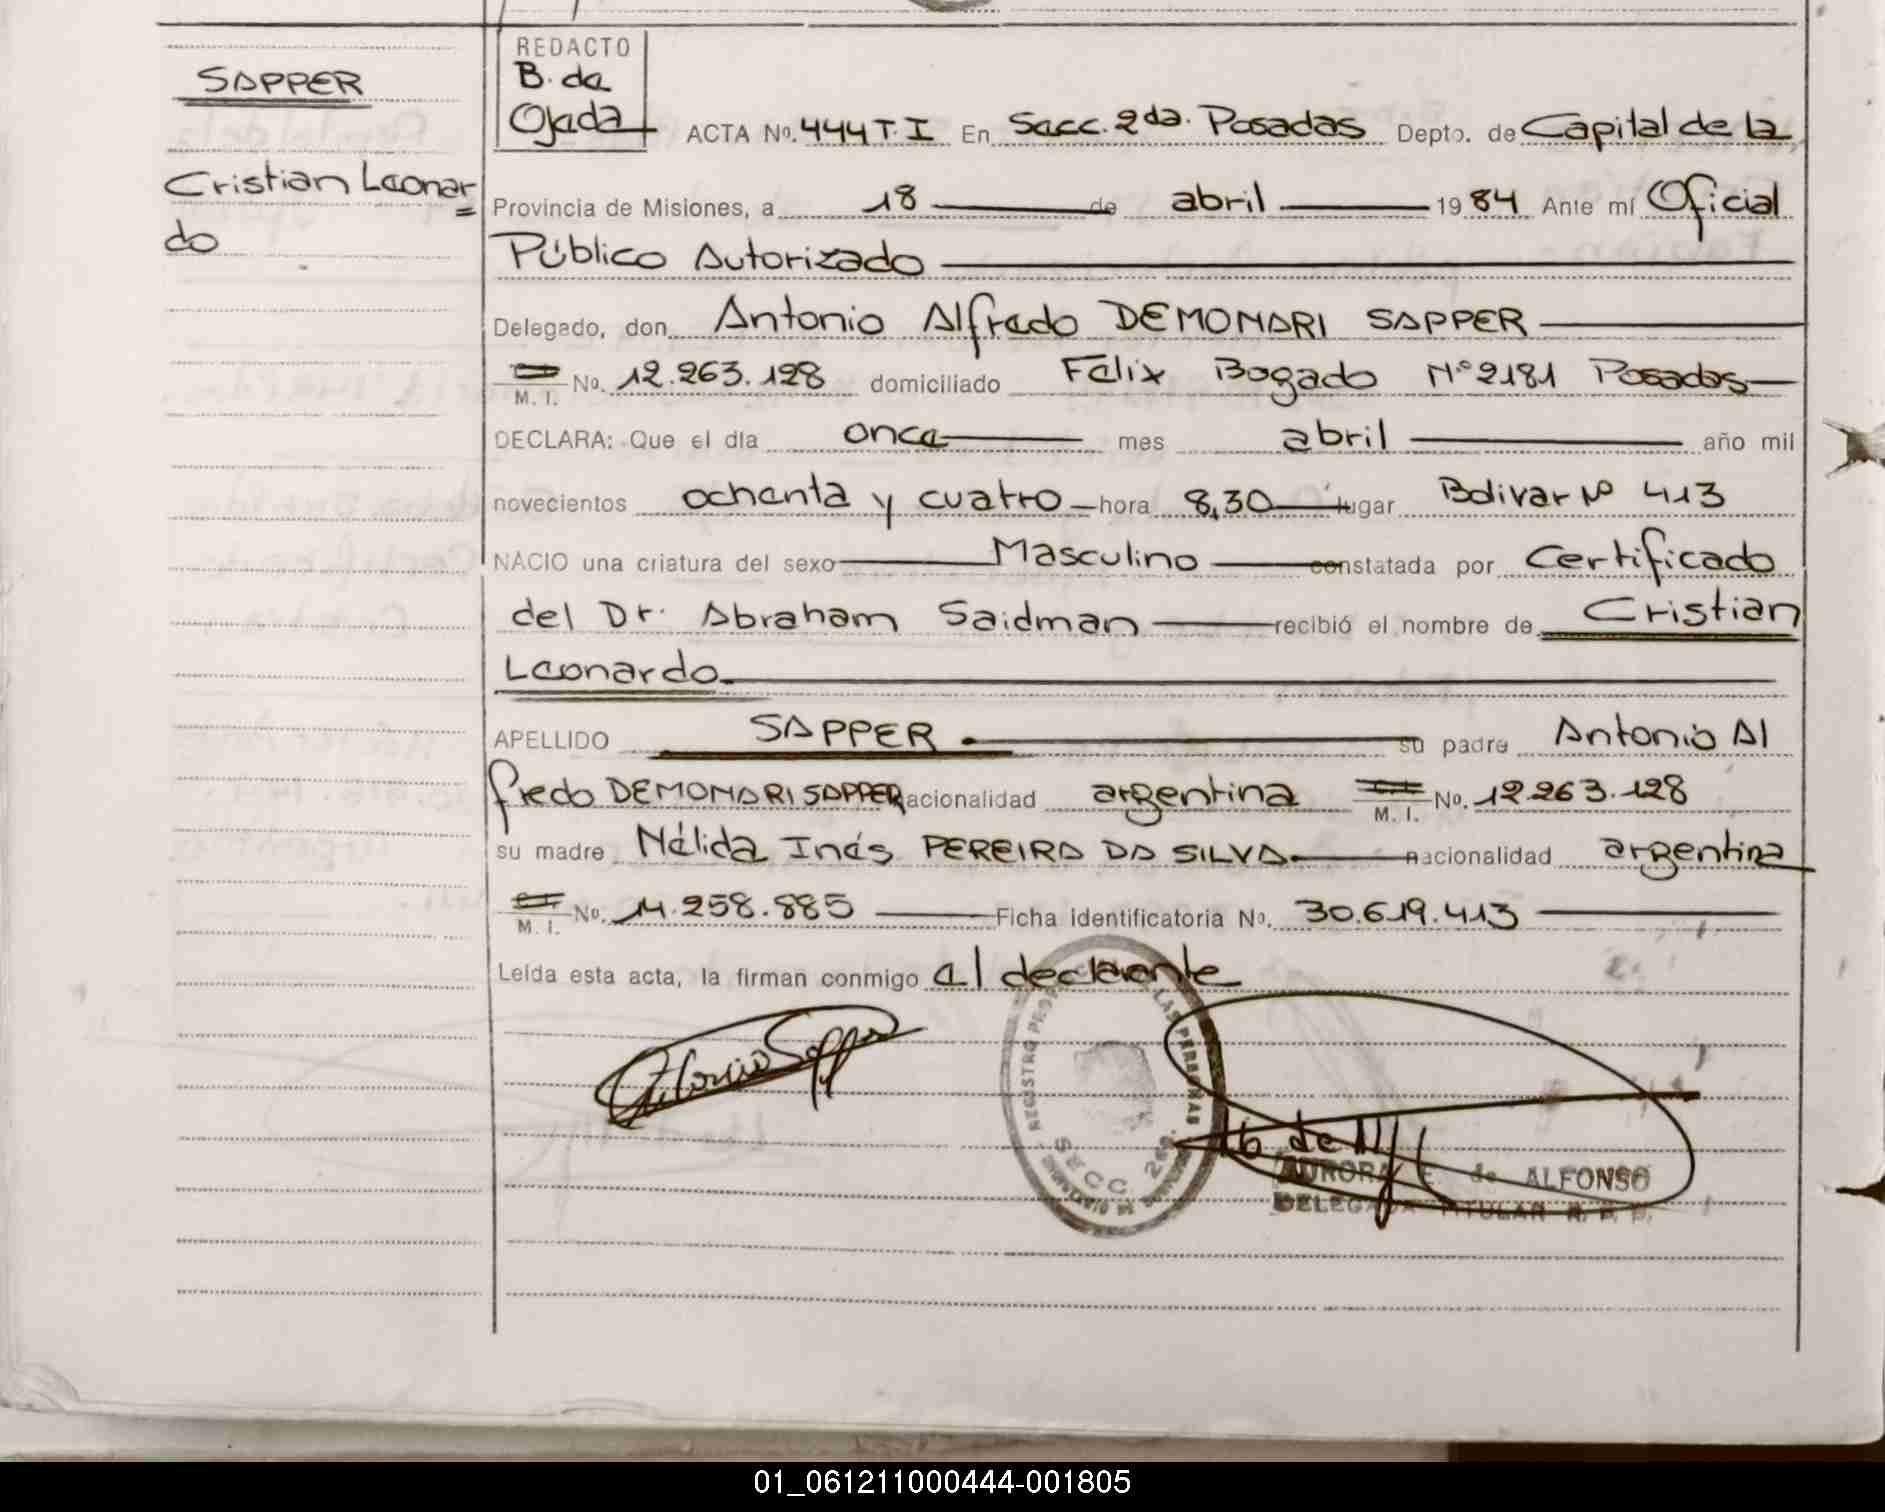 SAPPER
Cristian Leonar
do
REDACTO
B. de
Ojeda
ACTA No. 444 T. I En Secc. 2da. Posadas Depto. de Capital de la
Provincia de Misiones, a 18 de abril 1984 Ante mí Oficial
Público Autorizado
Delegado, don Antonio Alfredo DEMONARI SAPPER
M. I. No. 12.263.128 domiciliado Felix Bogado Nº 2181 Posadas
DECLARA: Que el día once mes abril año mil
novecientos ochenta y cuatro hora 8,30 lugar Bolivar Nº 413
NACIO una criatura del sexo Masculino constatada por Certificado
del Dr. Abraham Saidman recibió el nombre de Cristian
Leonardo
APELLIDO SAPPER su padre Antonio Al
fredo DEMONARI SAPPER nacionalidad argentina M. I. No. 12.263.128
su madre Nélida Inés PEREIRA DA SILVA nacionalidad argentina
M. I. No. 14.258.885 Ficha identificatoria No. 30.619.413
Leída esta acta, la firman conmigo el declarante
REGISTRO LAS PERSONAS
SECC. 2da.
AURORA E. de ALFONSO
DELEGADA TITULAR R. P. P.
01_061211000444-001805